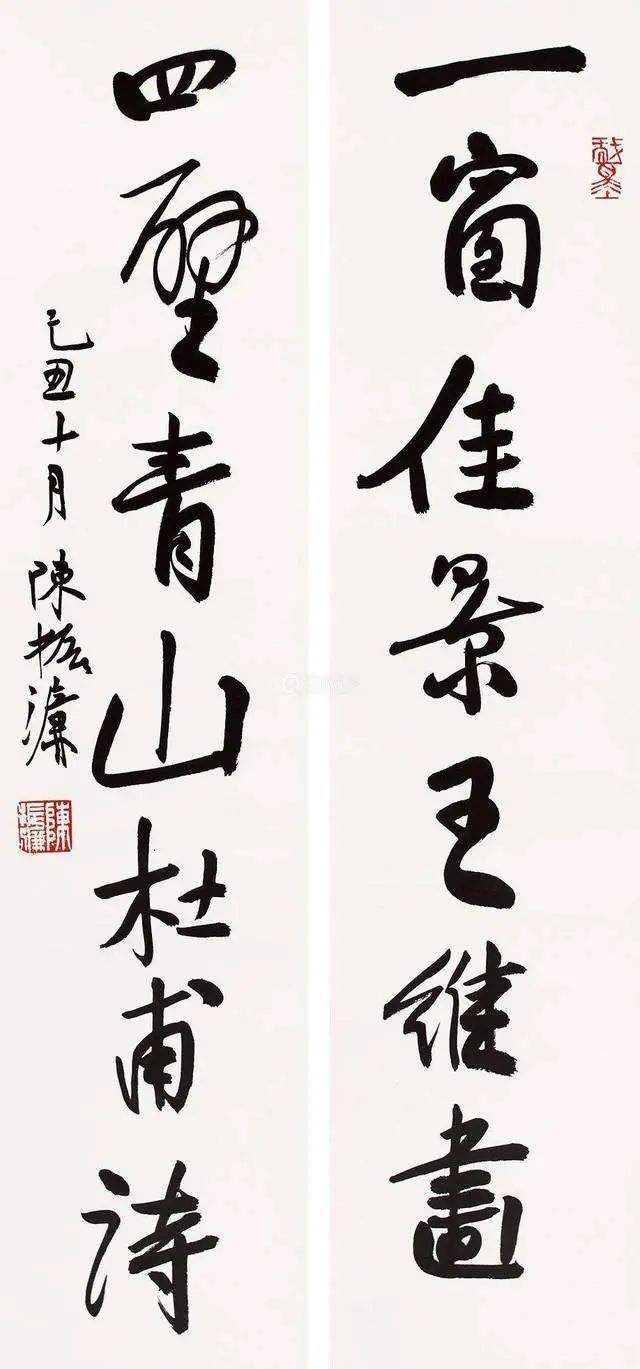 一窗佳景王維畫
四壁青山杜甫詩
己丑十月 陳振濂
陳振濂